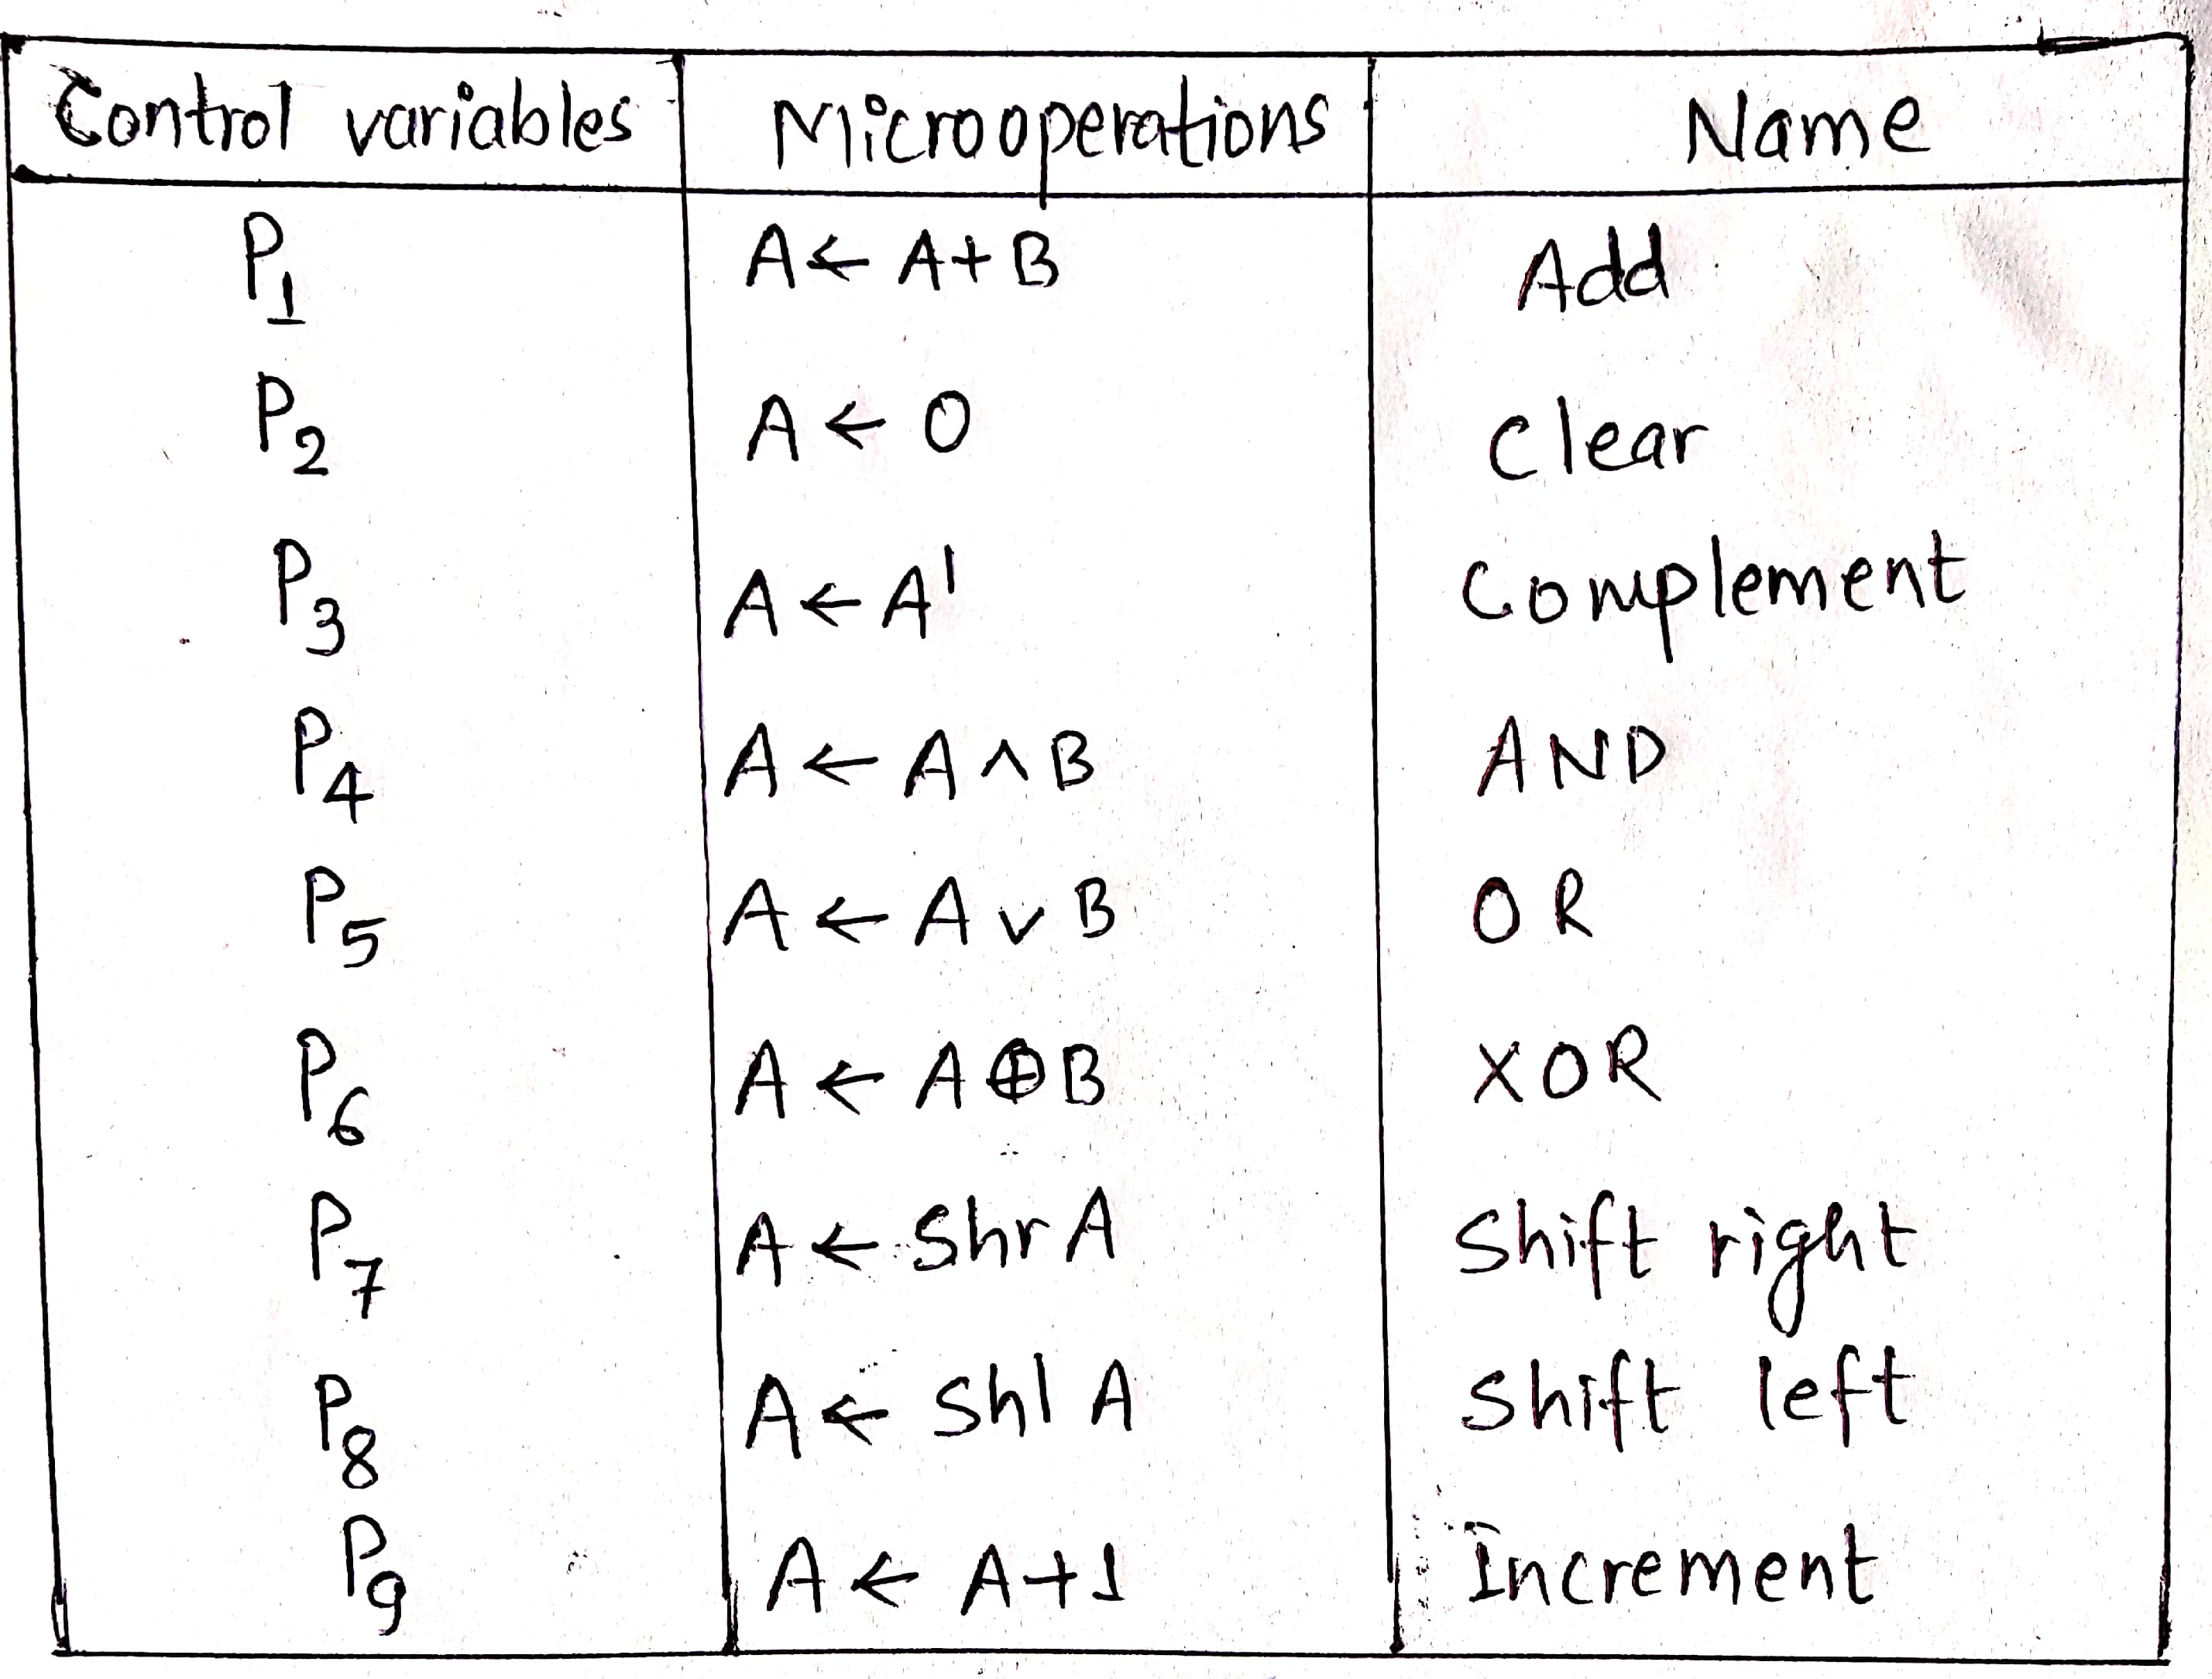 Control variables Microoperations Name
P₁ A ← A + B Add
P₂ A ← 0 Clear
P₃ A ← A' Complement
P₄ A ← A ∧ B AND
P₅ A ← A ∨ B OR
P₆ A ← A ⊕ B XOR
P₇ A ← Shr A Shift right
P₈ A ← Shl A Shift left
P₉ A ← A + 1 Increment